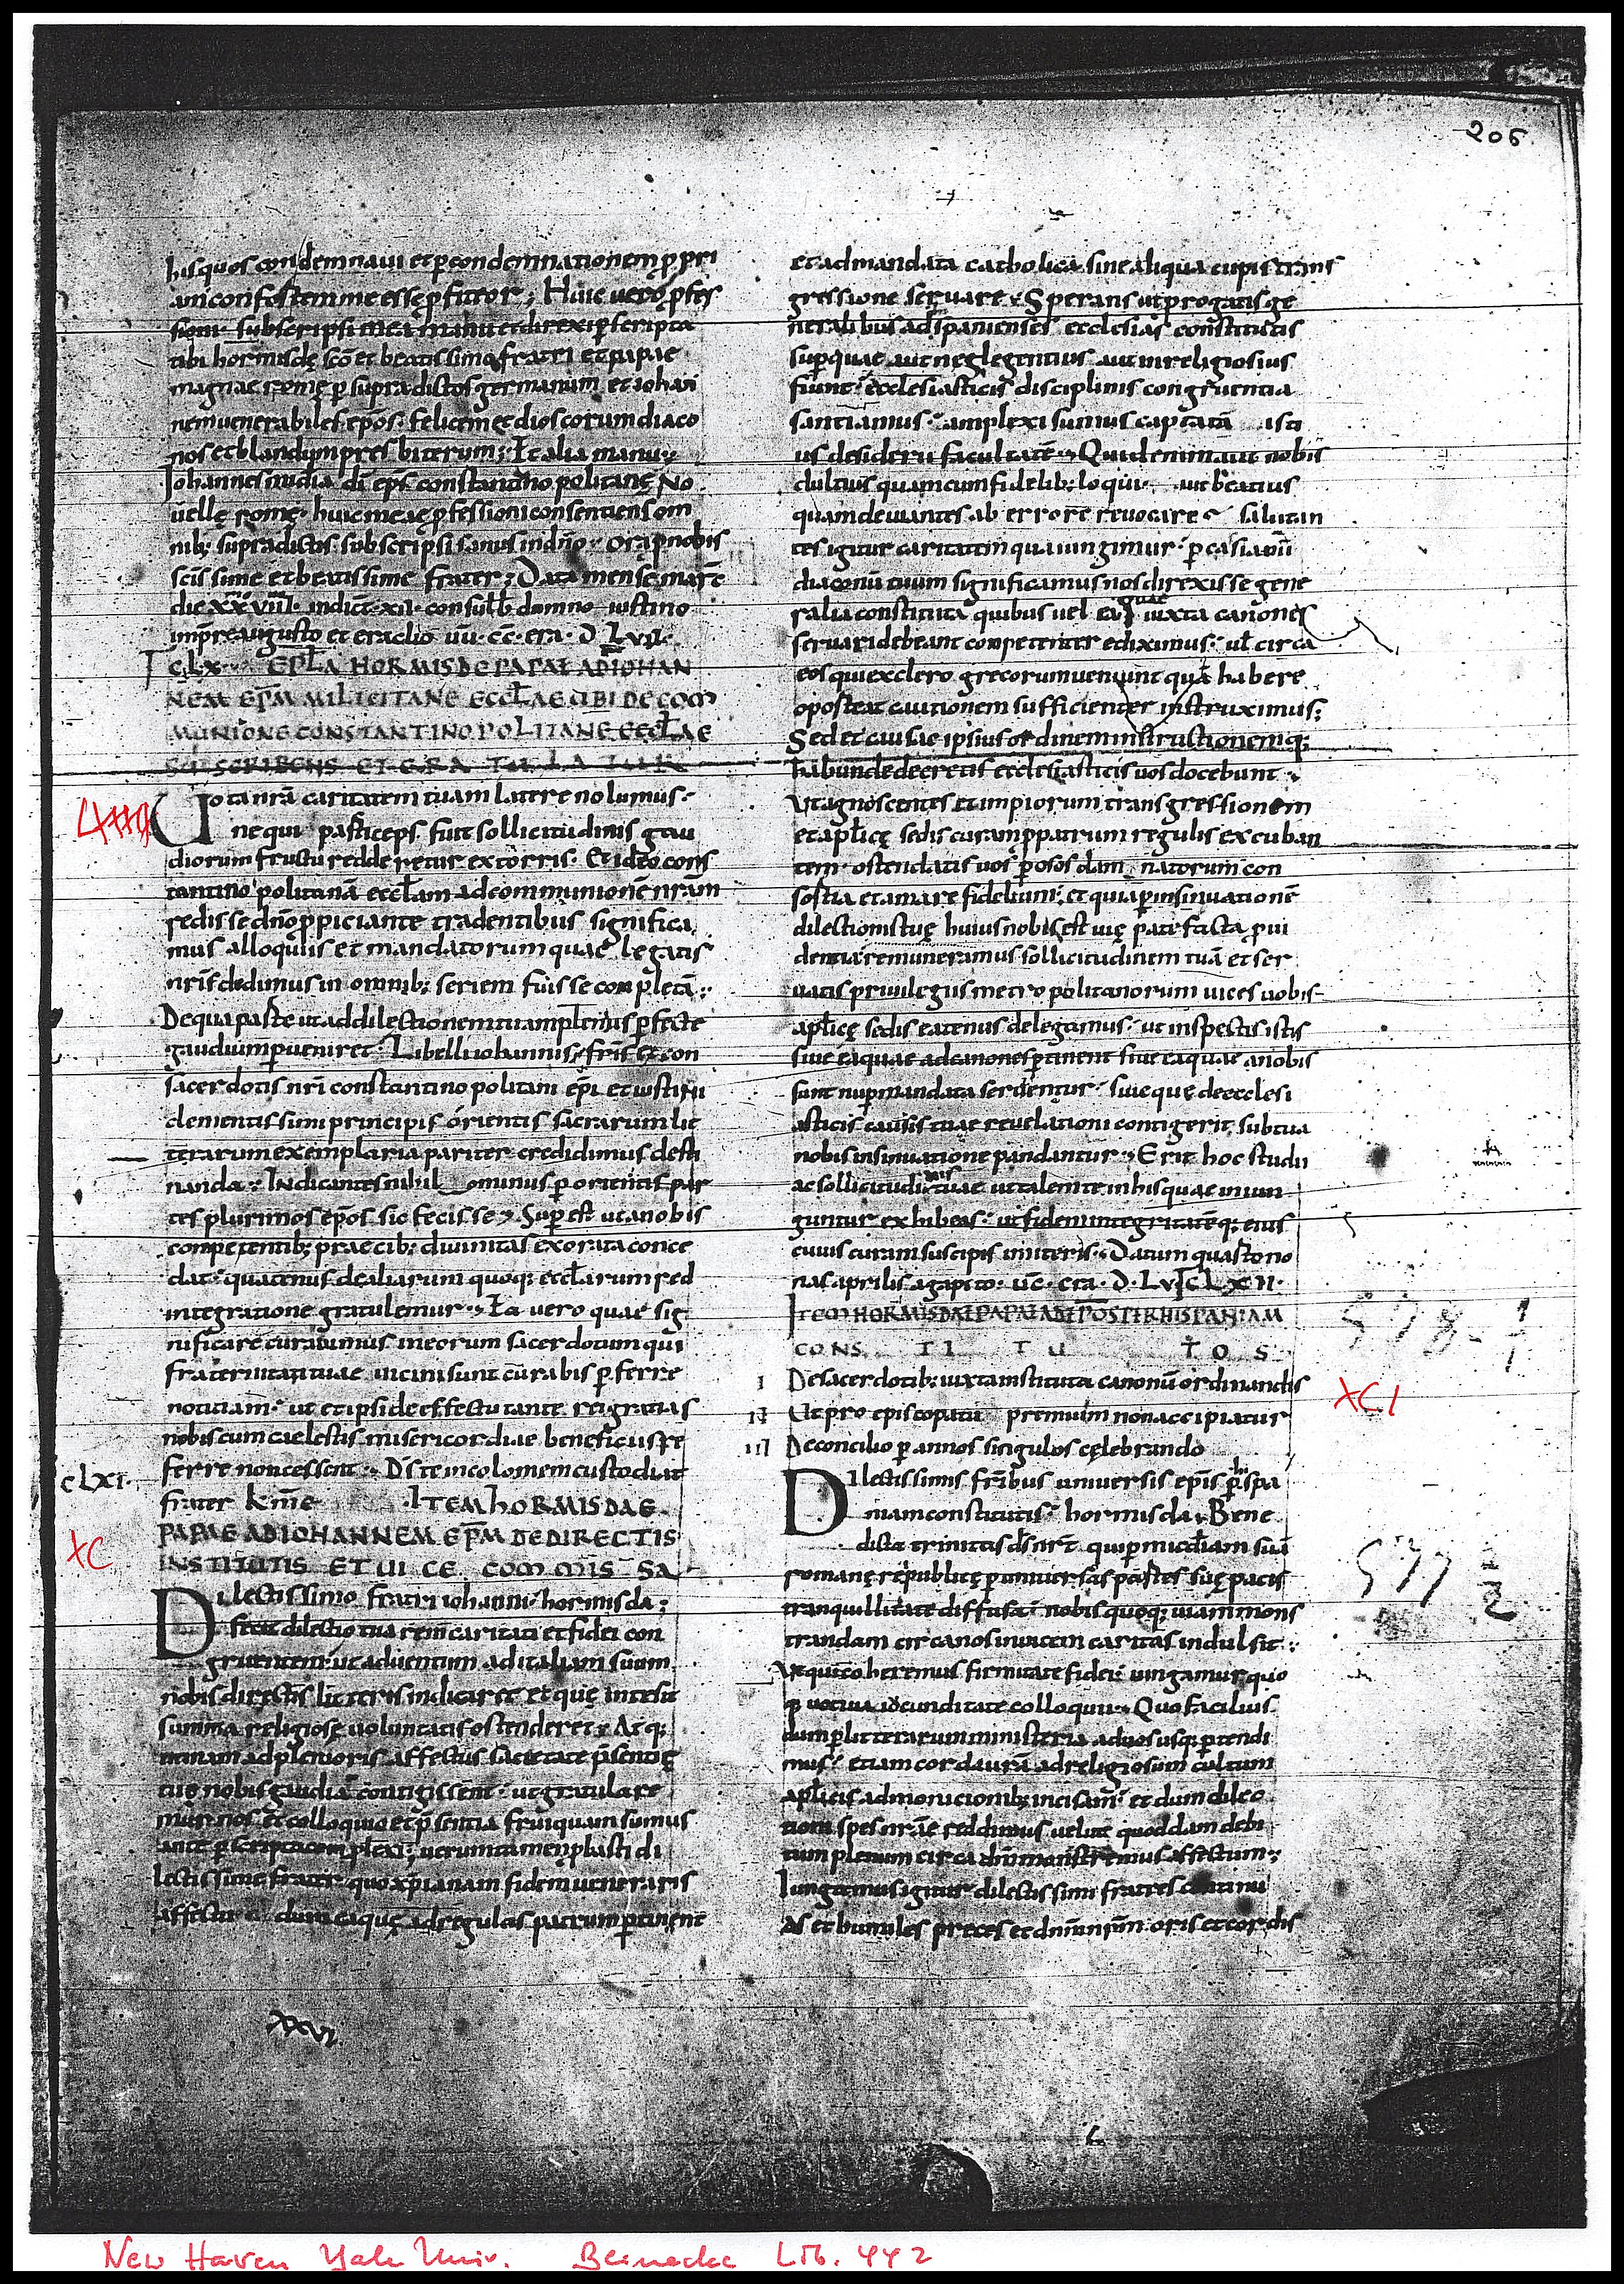 206
his quos condemnaui et p condemnationem p pri
am confostemme esse pfiteor; Huic uero pfes
sioni subscripsi mea manu et direxi p scripta
tibi hormisdę sc̄o et beatissimo fratri et papae
magnae romę p supradictos germanum et iohan
nem uenerabiles ep̄os felicem et dioscorum diaco
nos et blandum presbiterum; Et alia manu;
Iohannes mīdia dī ep̄s constantino politanę No
uellę romę huic meae pfessioni consentiens om
nib; supradictis subscripsi sanus in dn̄o ora p nobis
sc̄issime et beatissime frater; Data mense marc̄
die xxviiii indict xii consulb domno iustino
imp̄re augusto et eraclio uū cc̄ era D Lvii
CLX EPLA HORMISDE PAPAE AD IOHAN
NEM EP̄M MILICITANE ECCLAE UBI DE COM
MUNIONE CONSTANTINOPOLITANE ECCLAE
SCRIBENS ET GRATULATUR
Uota nr̄a caritatem tuam latere nolumus
ne qui particeps fuit sollicitudinis gau
diorum fructu redderetur extorris Et ideo cons
tantino politanā eccl̄am ad communionē nr̄am
redisse dn̄o ppiciante tradentibus significa
mus alloquiis et mandatorum quae legatis
nr̄is dedimus in omnib; seriem fuisse completā;
De qua parte ut ad dilectionem tuam plenius pfecte
gaudium pueniret Libelli iohannis fr̄is et con
sacerdotis nr̄i constantino politani ep̄i et iustini
clementissimi principis orientis sacrarum lit
terarum exemplaria pariter credidimus desti
nanda Indicantes nihilominus p orientis par
tes plurimos ep̄os sic fecisse Supest ut a nobis
competentib; praecib; diuinitas exorata conce
dat quatenus de aliarum quoq; eccl̄arum red
integratione gratulemur Ea uero quae sig
nificare curauimus in eorum sacerdotum qui
fraternitati tuae uicini sunt curabis pferre
notitiam ut et ipsi de effectu tante rei gratias
nobiscum caelestis misericordiae beneficiis re
ferre non cessent Ds̄ te incolomem custodiat
frater km̄e ITEM HORMISDAE
CLXI
PAPAE AD IOHANNEM EP̄M DE DIRECTIS
XC
INSTITUTIS ET UICE COMMISSA
Dilectissimo fratri iohanni hormisda;
fecit dilectio tua rem caritati et fidei con
gruentem ut aduentum ad italiam suum
nobis directis litteris indicaret et quę intesit
summa religiosę uoluntatis ostenderet Atq;
utinam ad plenioris affectus sacietate p̄sentię
tuę nobis gaudia contigissent ut gratulare
mur nos et colloquio et p̄sentia frui quam sumus
ante p scripta complexi; uerumtamen p hasti di
lectissime frater quo xp̄ianam fidem ueneraris
affectu dum ea quę ad regulas patrum ptinent
XXVI
et ad mandata catholica sine aliqua cupis trans
gressione seruare Sperans ut progatis ge
neralibus ad spanienses ecclesias constitutis
sup quae aut neglegentius aut inreligiosius
fiunt ecclesiasticis disciplinis congruentia
sanctiamus amplexi sumus captatā isti
us desiderii facultatē Quid enim aut nobis
dultius quam cum fidelib; loqui aut beatius
quam deuiantes ab errore reuocare Salutan
tes igitur caritatem qua iungimur p casianū
diaconū tuum significamus nos direxisse gene
ralia constituta quibus uel ea quae iuxta canones
seruari debeant competenter ediximus ul̄ circa
eos qui ex clero grecorum ueniunt quā habere
oporteat cautionem sufficienter instruximus;
Sed et causae ipsius ordinem instructionemq;
habunde decretis ecclesiasticis uos docebunt
Ut agnoscentes et impiorum transgressionem
et aplicę sedis curam p patrum regulis excuban
tem ostendatis uos posos damnatorum con
sortia et amare fidelium et quia p insinuationē
dilectionis tuę huius nobis est uię patefacta p ui
dentia remuneramus sollicitudinem tuā et ser
uatis priuilegiis metropolitanorum uices uobis
aplicę sedis eatenus delegamus ut inspectis istis
siue ea quae ad canones ptinent siue ea quae a nobis
sunt nup mandata seruentur siue quę de ecclesi
asticis causis tuae reuelationi contigerit sub tua
nobis insinuatione pandantur Erit hoc studii
ac sollicitudinis tuae ut talem te in his quae iniun
guntur exhibeas ut fidem integritatēq; eius
cuius curam suscipis imiteris Datum quarto no
nas aprilis agapito uc̄ era D Lv CLXII
ITEM HORMISDAE PAPAE AD EP̄OS PER HISPANIAM
CONS TI TU TOS
I De sacerdotib; iuxta instituta canonū ordinandis
XCI
II Ut pro episcopatu premium non accipiatur
III De concilio p annos singulos cęlebrando
Dilectissimis fr̄ibus uniuersis ep̄is p hispa
niam constitutis hormisda Bene
dicta trinitas ds̄ nr̄ qui p mīcdiam suā
romanę republicę p uniuersas partes suę pacis
tranquillitate diffusa nobis quoq; uiam mons
trandam circa nos inuicem caritas indulsit
Ut qui coheremus firmitate fidei iungamur quo
q; uotiua iocunditate colloquii Quo facilius
dum p litterarum ministeria ad uos usq; ptendi
mus etiam corda urā ad religiosum cultum
aplicis admonicionib; incisam et dum dileo
tioni spes nr̄ae reddimus uelut quoddam debi
tum plenum circa dn̄m monstremus affectum;
Iungamus igitur dilectissimi fratres continu
as et humiles preces et dn̄m nr̄m oris et cordis
New Haven Yale Univ. Beinecke Lib. 442